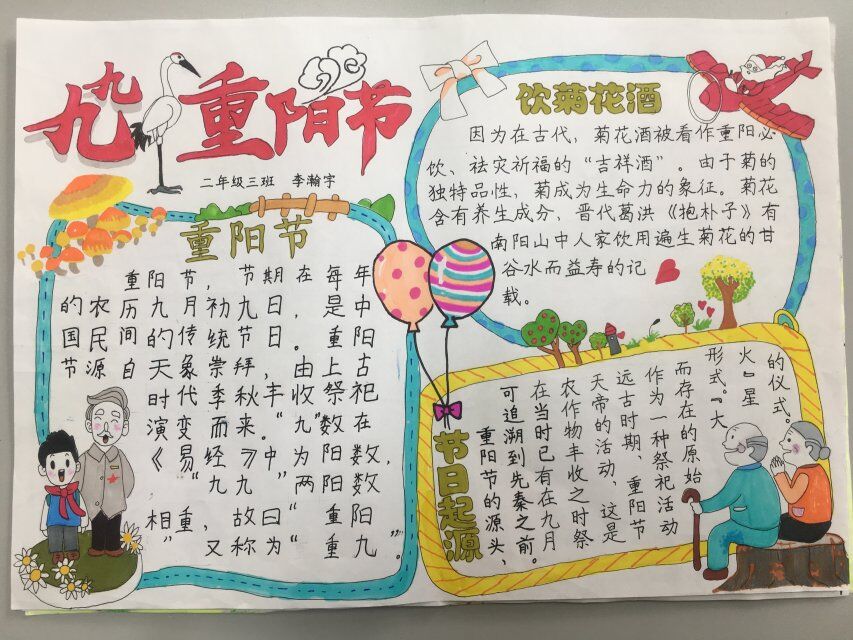 九九重阳节
二年级三班 李瀚宇
重阳节
重阳节，节期在每年
的农历九月初九日，是中
国民间的传统节日。重阳
节源自天象崇拜，由上古
时代季秋丰收祭祀
演变而来。“九”数在
《易经》中为阳数，
，“九九”两阳数
相重，故曰“重阳
”又称为“重九”。
饮菊花酒
因为在古代，菊花酒被看作重阳必
饮、祛灾祈福的“吉祥酒”。由于菊的
独特品性，菊成为生命力的象征。菊花
含有养生成分，晋代葛洪《抱朴子》有
南阳山中人家饮用遍生菊花的甘
谷水而益寿的记
载。
节日起源
重阳节的源头，
可追溯到先秦之前。
在当时已有在九月
农作物丰收之时祭
天帝的活动，这是
远古时期，重阳节
作为一种祭祀活动
而存在的原始
形式。『大
火』星
的仪式。